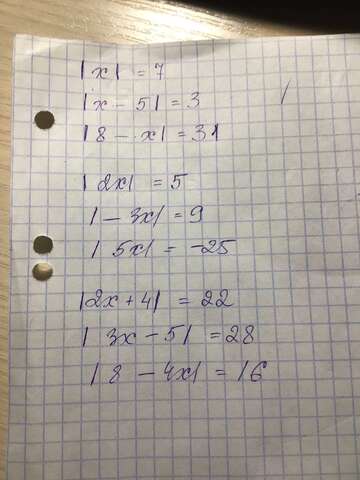 |x| = 7
|x - 5| = 3
|8 - x| = 31
|2x| = 5
|-3x| = 9
|5x| = -25
|2x + 4| = 22
|3x - 5| = 28
|8 - 4x| = 16